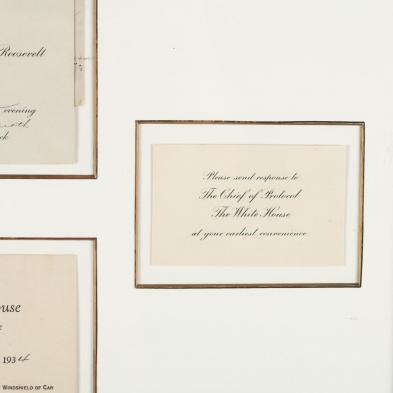 Roosevelt
evening
Please send response to
The Chief of Protocol
The White House
at your earliest convenience
1934
Windshield of Car